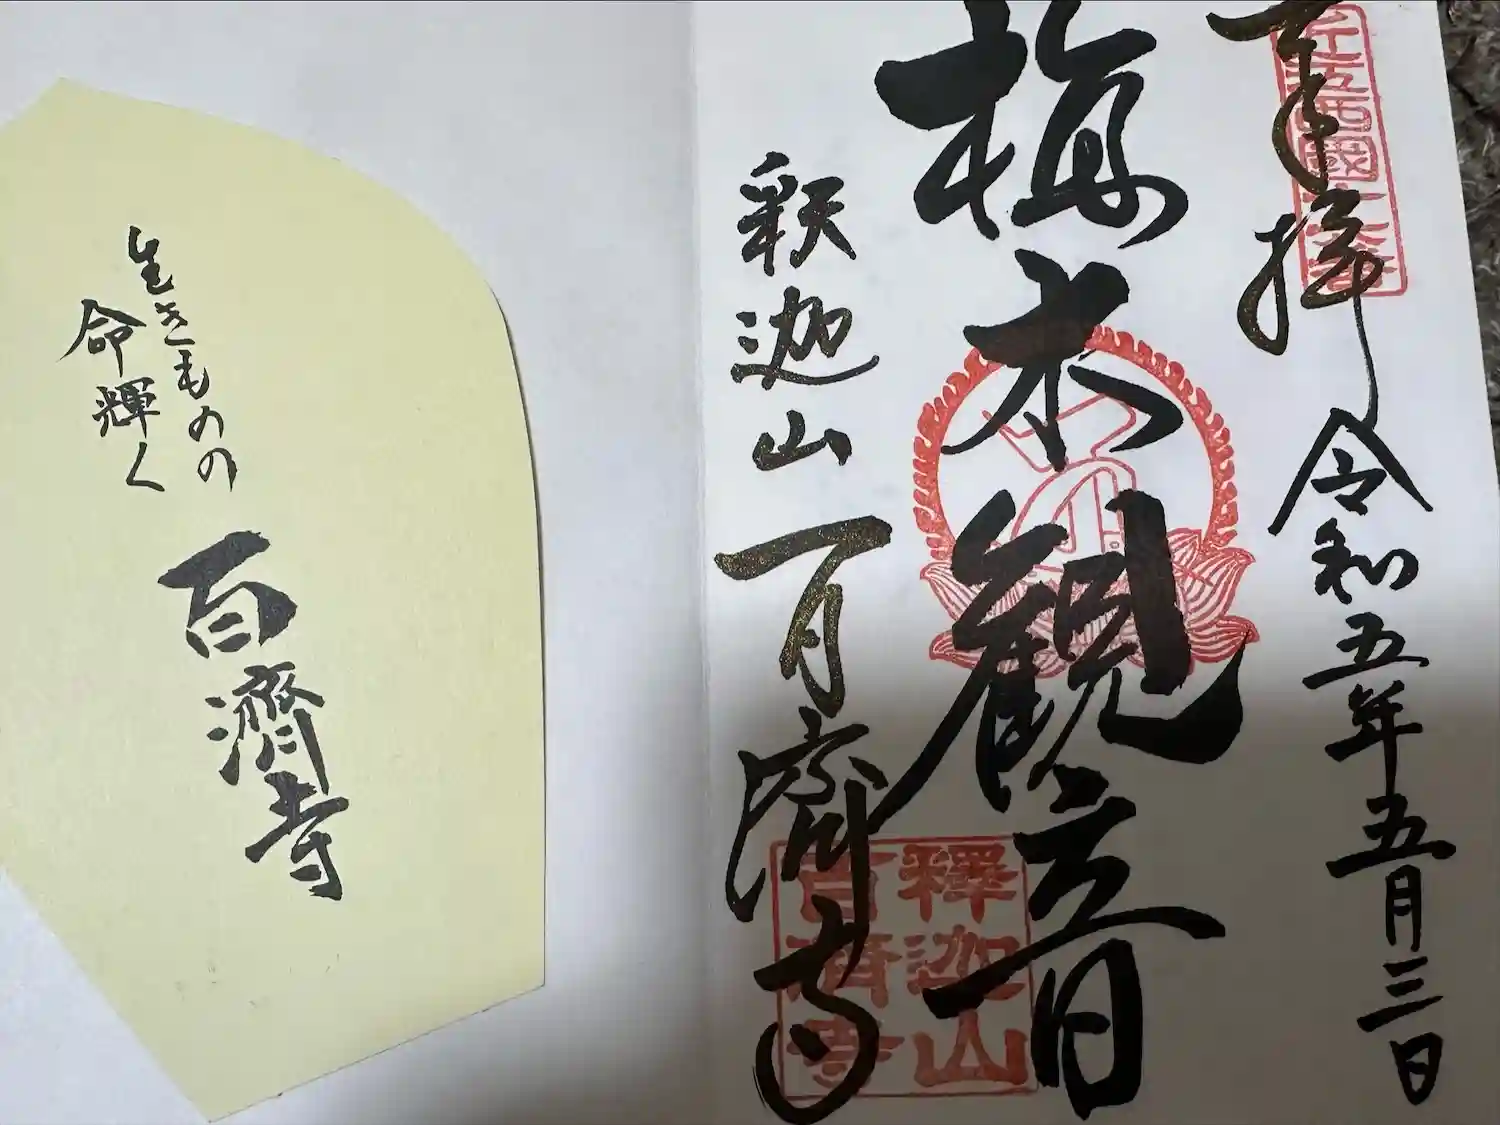 奉拝 令和五年五月三日
近江西國十六番
植木観音
釈迦山 百濟寺
釋迦山
百濟寺
生きものの
命輝く
百濟寺